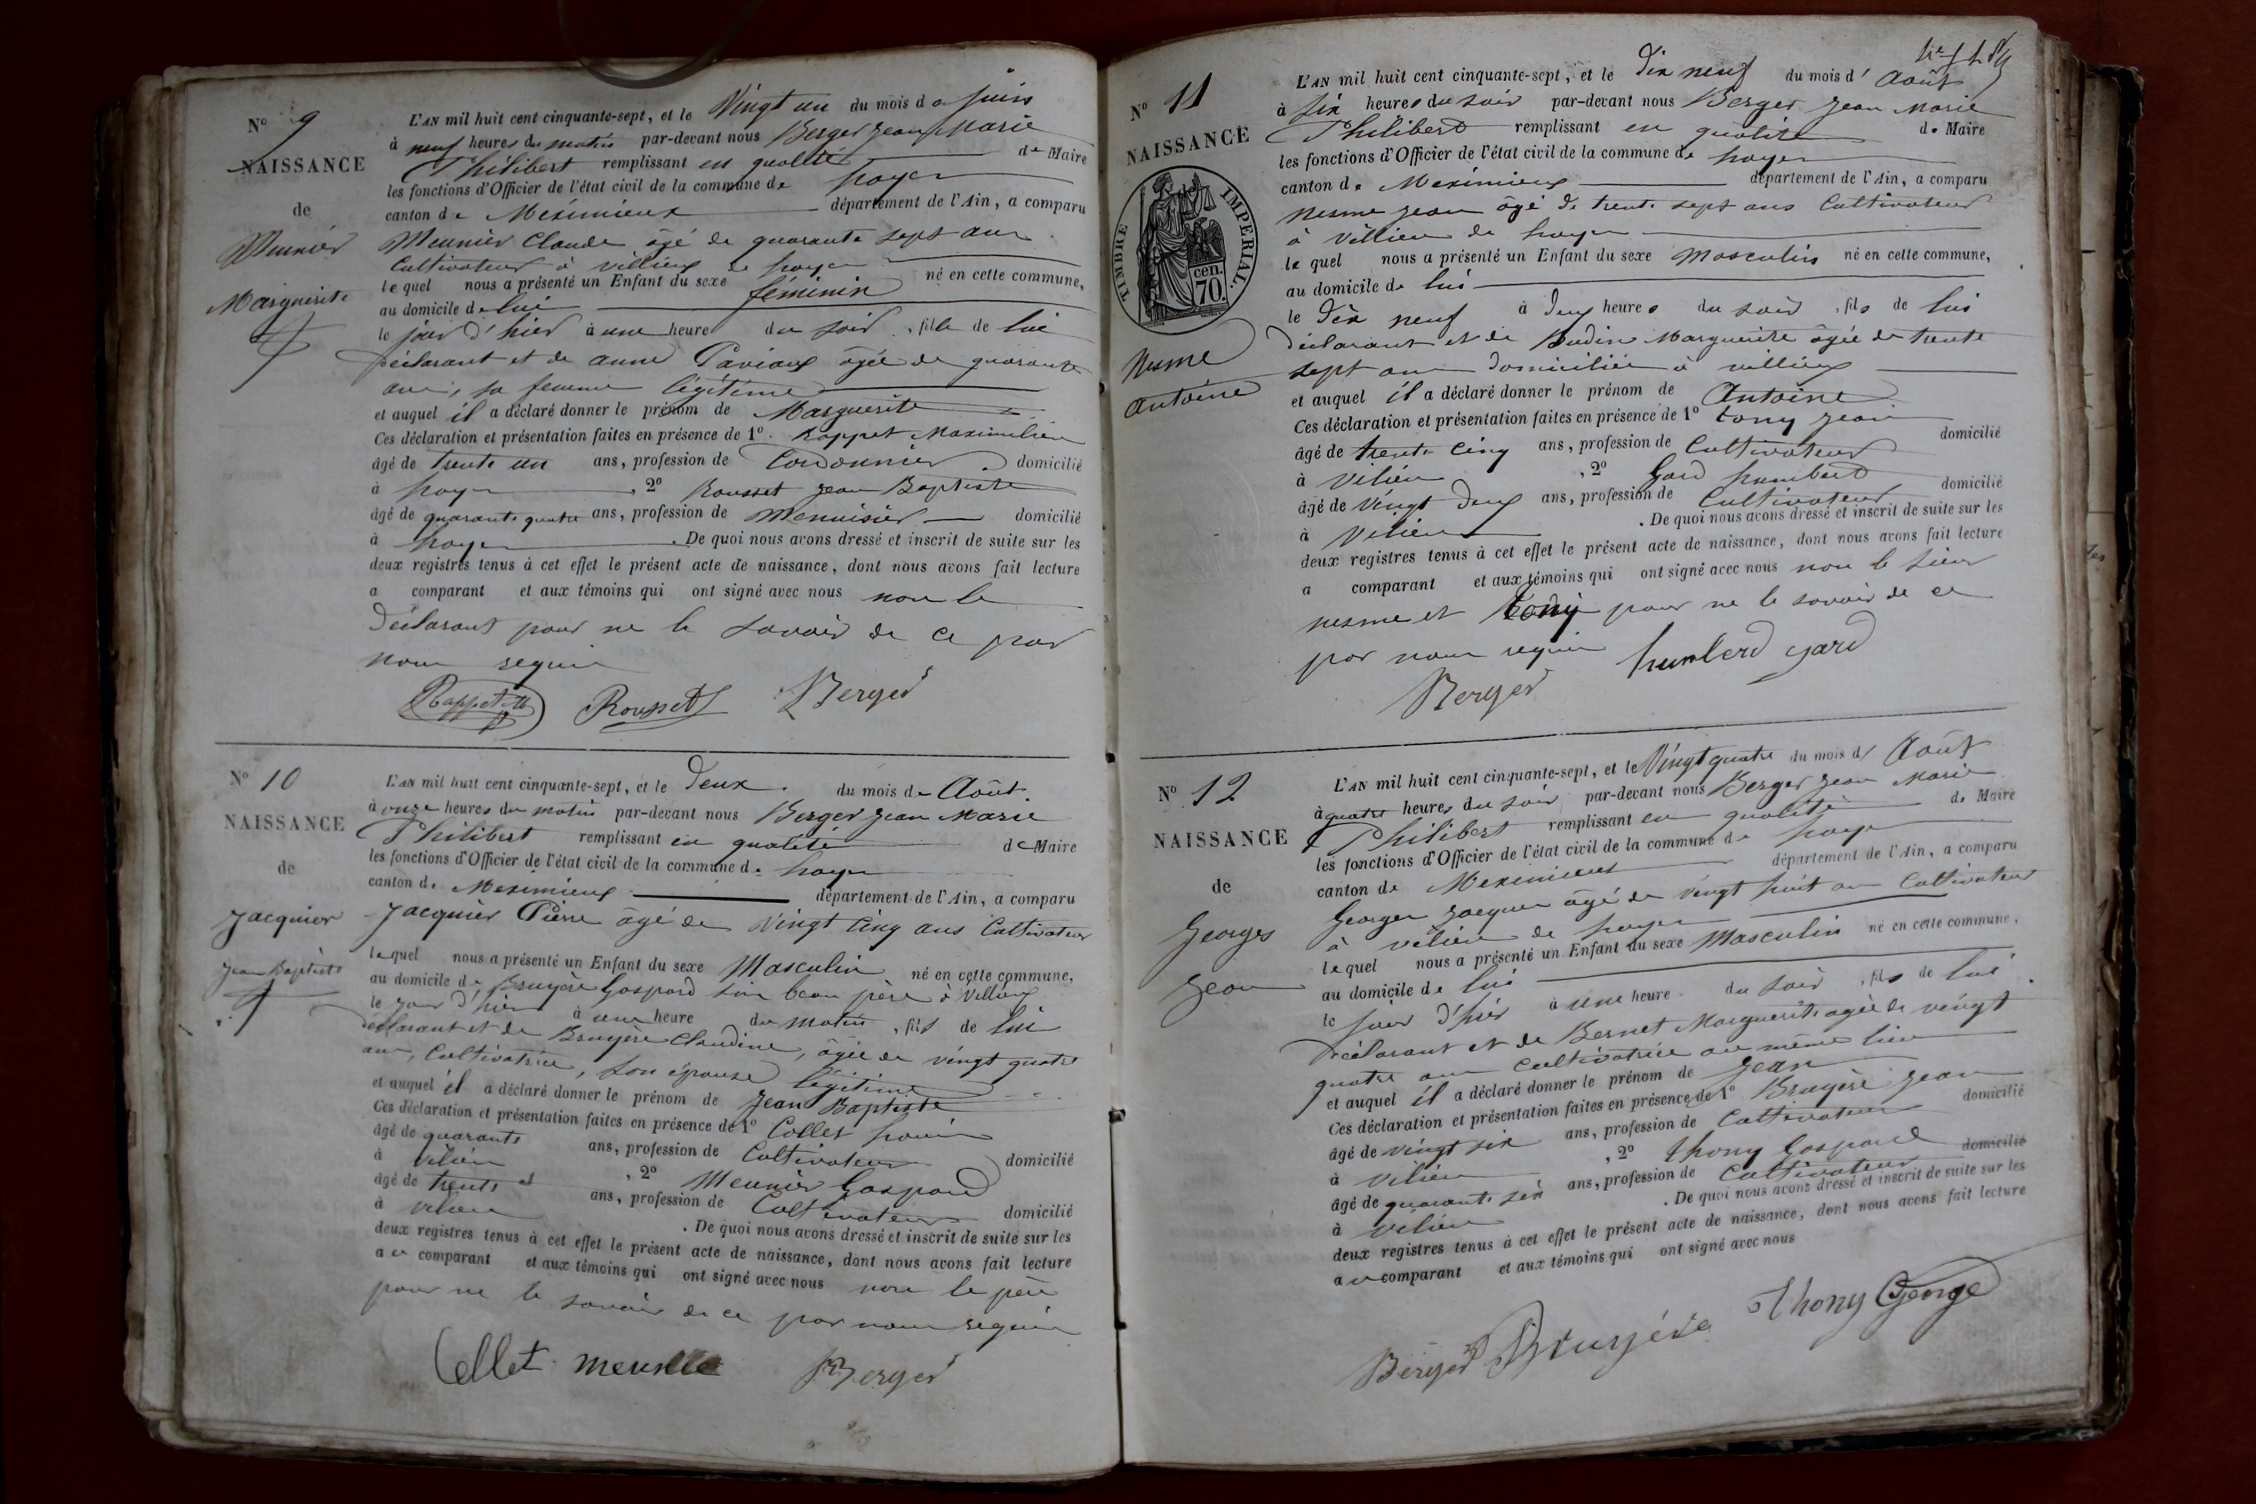 N° 9
NAISSANCE
de
Meunier
Marguerite
L'AN mil huit cent cinquante-sept, et le Vingt un du mois de Juin
à neuf heures du matin par-devant nous Berger Jean Marie
Philibert remplissant en qualité de Maire
les fonctions d'Officier de l'état civil de la commune de
canton de Meximieux département de l'Ain, a comparu
Meunier Claude âgé de quarante sept ans
Cultivateur à Villieu
lequel nous a présenté un Enfant du sexe féminin né en cette commune,
au domicile de lui
le jour d'hier à une heure du soir, fille de lui
déclarant et de anne Paviaux âgée de quarante
ans, sa femme légitime
et auquel il a déclaré donner le prénom de Marguerite
Ces déclaration et présentation faites en présence de 1° Rappet Maximilien
âgé de trente un ans, profession de Cordonnier domicilié
à , 2° Rousset Jean Baptiste
âgé de quarante quatre ans, profession de Menuisier domicilié
à . De quoi nous avons dressé et inscrit de suite sur les
deux registres tenus à cet effet le présent acte de naissance, dont nous avons fait lecture
a comparant et aux témoins qui ont signé avec nous non le
déclarant pour ne le savoir de ce par
nous requis
Rappet Rousset Berger
N° 10
NAISSANCE
de
Jacquier
Jean Baptiste
L'AN mil huit cent cinquante-sept, et le Deux du mois de Août
à onze heures du matin par-devant nous Berger Jean Marie
Philibert remplissant en qualité de Maire
les fonctions d'Officier de l'état civil de la commune de
canton de Meximieux département de l'Ain, a comparu
Jacquier Pierre âgé de vingt cinq ans Cultivateur
lequel nous a présenté un Enfant du sexe Masculin né en cette commune,
au domicile de Bruyère Gaspard son beau père à Villieux
le jour d'hier à une heure du matin, fils de lui
déclarant et de Bruyère Claudine, âgée de vingt quatre
ans, Cultivatrice, son épouse légitime
et auquel il a déclaré donner le prénom de Jean Baptiste
Ces déclaration et présentation faites en présence de 1° Collet
âgé de quarante ans, profession de Cultivateur domicilié
à Vilieu , 2° Meunier Gaspard
âgé de trente ans, profession de Cultivateur domicilié
à Vilieu . De quoi nous avons dressé et inscrit de suite sur les
deux registres tenus à cet effet le présent acte de naissance, dont nous avons fait lecture
au comparant et aux témoins qui ont signé avec nous non le père
pour ne le savoir de ce par nous requis
Collet Berger
N° 11
NAISSANCE
de
TIMBRE IMPERIAL.
70 cen.
Nesme
Antoine
L'AN mil huit cent cinquante-sept, et le dix neuf du mois d'Août
à six heures du soir par-devant nous Berger Jean Marie
Philibert remplissant en qualité de Maire
les fonctions d'Officier de l'état civil de la commune de
canton de Meximieux département de l'Ain, a comparu
Nesme Jean âgé de trente sept ans Cultivateur
à Villieu de
lequel nous a présenté un Enfant du sexe Masculin né en cette commune,
au domicile de lui
le dix neuf à deux heures du soir, fils de lui
déclarant et de Budin Marguerite âgée de trente
sept ans domiciliée à villieux
et auquel il a déclaré donner le prénom de Antoine
Ces déclaration et présentation faites en présence de 1° tony Jean
âgé de trente cinq ans, profession de Cultivateur domicilié
à Vilieu , 2° Gard humbert
âgé de vingt deux ans, profession de Cultivateur domicilié
à Vilieu . De quoi nous avons dressé et inscrit de suite sur les
deux registres tenus à cet effet le présent acte de naissance, dont nous avons fait lecture
a comparant et aux témoins qui ont signé avec nous non le sieur
nesme et tony pour ne le savoir de ce
par nous requis humberd gard
Berger
N° 12
NAISSANCE
de
Georges
Jean
L'AN mil huit cent cinquante-sept, et le Vingt quatre du mois d'Août
à quatre heures du soir par-devant nous Berger Jean Marie
Philibert remplissant en qualité de Maire
les fonctions d'Officier de l'état civil de la commune de
canton de Meximieux département de l'Ain, a comparu
Georges Jacques âgé de vingt huit ans Cultivateur
à vilieu de
lequel nous a présenté un Enfant du sexe Masculin né en cette commune,
au domicile de lui
le jour d'hier à une heure du soir, fils de lui
déclarant et de Bernet Marguerite agée de vingt
quatre ans cultivatrice au même lieu
et auquel il a déclaré donner le prénom de Jean
Ces déclaration et présentation faites en présence de 1° Bruyère Jean
âgé de vingt six ans, profession de Cultivateur domicilié
à Vilieu , 2° thony Gaspard
âgé de quarante six ans, profession de Cultivateur domicilié
à vilieu . De quoi nous avons dressé et inscrit de suite sur les
deux registres tenus à cet effet le présent acte de naissance, dont nous avons fait lecture
au comparant et aux témoins qui ont signé avec nous
Berger Bruyère Thony George